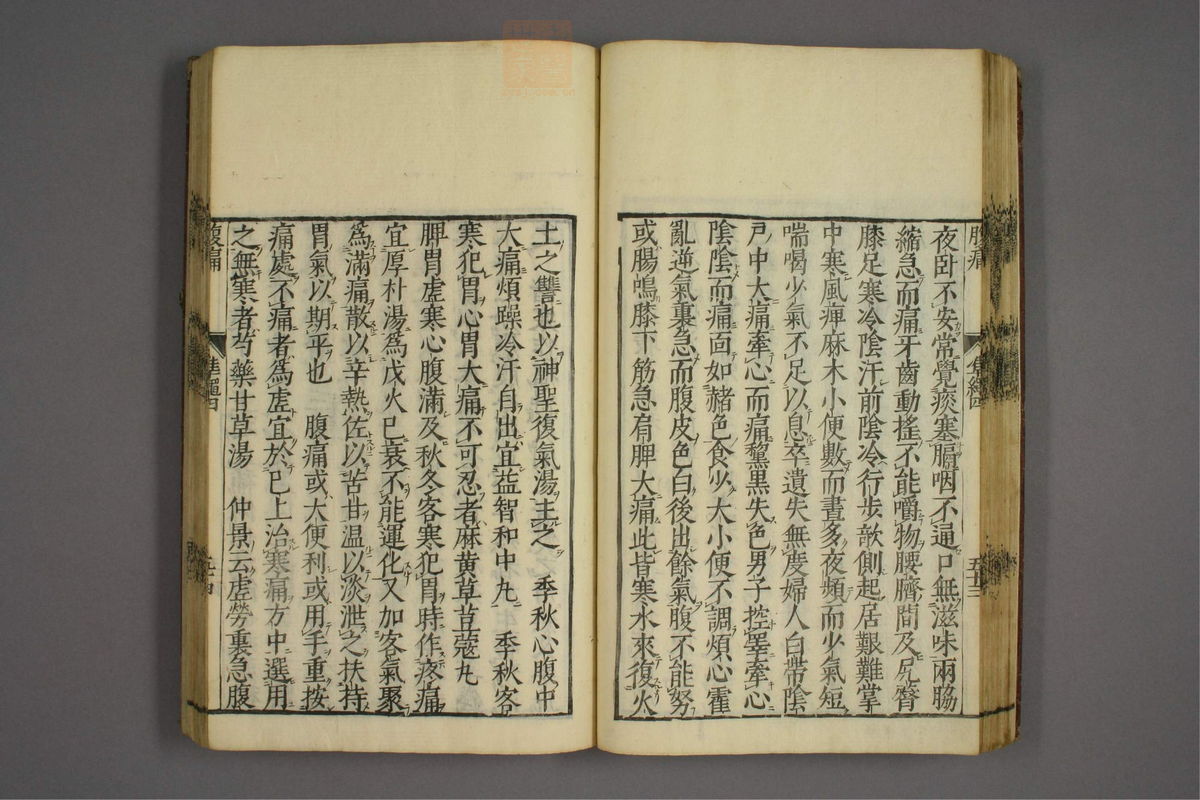 夜卧不安常覺痰塞膈咽不通口無滋味兩脇
縮急而痛牙齒動搖不能嚼物腰臍間及尻臀
膝足寒冷陰汗前陰冷行步欹側起居艱難掌
中寒風痺麻木小便數而晝多夜頻而少氣短
喘喝少氣不足以息卒遺失無度婦人白帶陰
戶中大痛牽心而痛黧黑失色男子控睪牽心
陰陰而痛面如赭色食少大小便不調煩心霍
亂逆氣裏急而腹皮色白後出餘氣腹不能努
或腸鳴膝下筋急肩胛大痛此皆寒水來復火
土之讐也以神聖復氣湯主之 季秋心腹中
大痛煩躁冷汗自出宜益智和中丸 季秋客
寒犯胃心胃大痛不可忍者麻黄草荳蔻丸
脾胃虛寒心腹滿及秋冬客寒犯胃時作疼痛
宜厚朴湯爲戊火已衰不能運化又加客氣聚
爲滿痛散以辛熱佐以苦甘温以淡泄之扶持
胃氣以期平也 腹痛或大便利或用手重按
痛處不痛者爲虛宜於巳上治寒痛方中選用
之無寒者芍藥甘草湯 仲景云虛勞裏急腹
腹痛